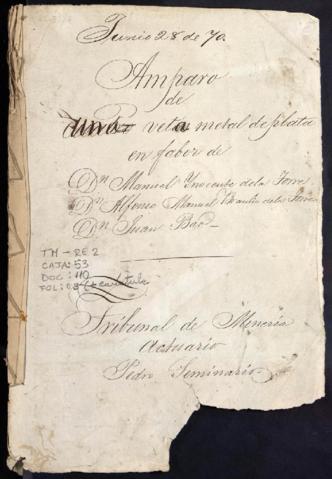 Junio 28 de 70
Amparo
de
una veta metal de plata
en fabor de
Dn Manuel Ynocente de la Torre
Dn Alfonso Manuel de la Torre
Dn Juan Bao
TM - RE 2
CAJA: 53
DOC: 110
FOL: 08 (+ caratula)
Tribunal de Mineria
Actuario
Pedro Seminario